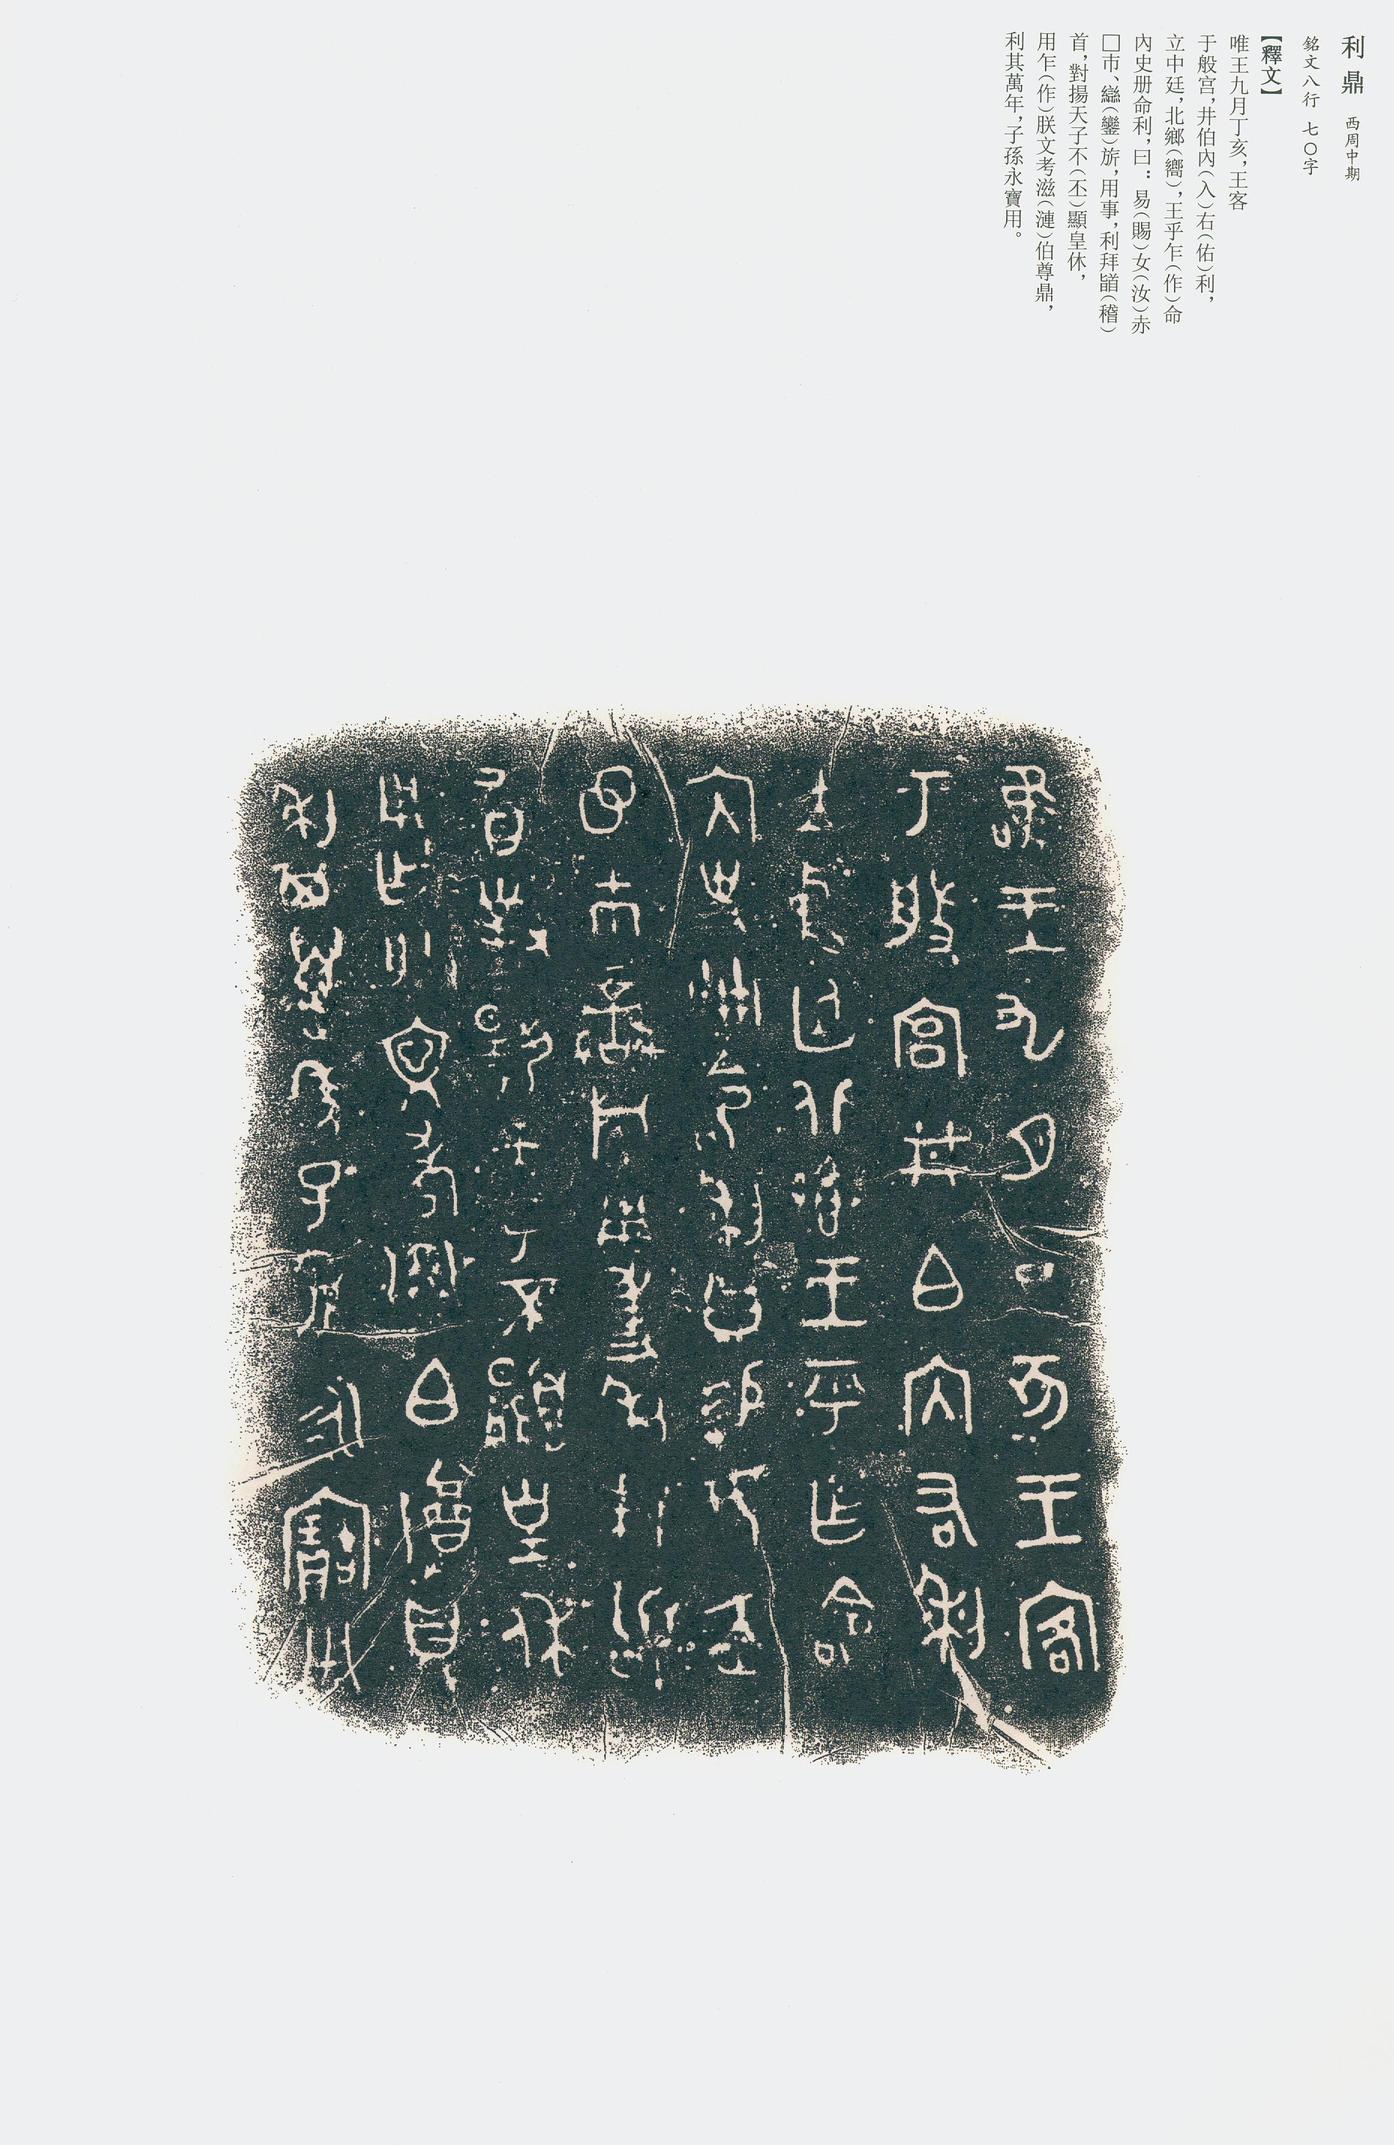 利鼎 西周中期
銘文八行 七〇字
【釋文】
唯王九月丁亥，王客
于般宫，井伯內（入）右（佑）利，
立中廷，北鄉（嚮），王乎乍（作）命
內史册命利，曰：易（賜）女（汝）赤
□市、䜌（鑾）旂，用事，利拜䭫（稽）
首，對揚天子不（丕）顯皇休，
用乍（作）朕文考㵒（漣）伯尊鼎，
利其萬年，子孫永寶用。